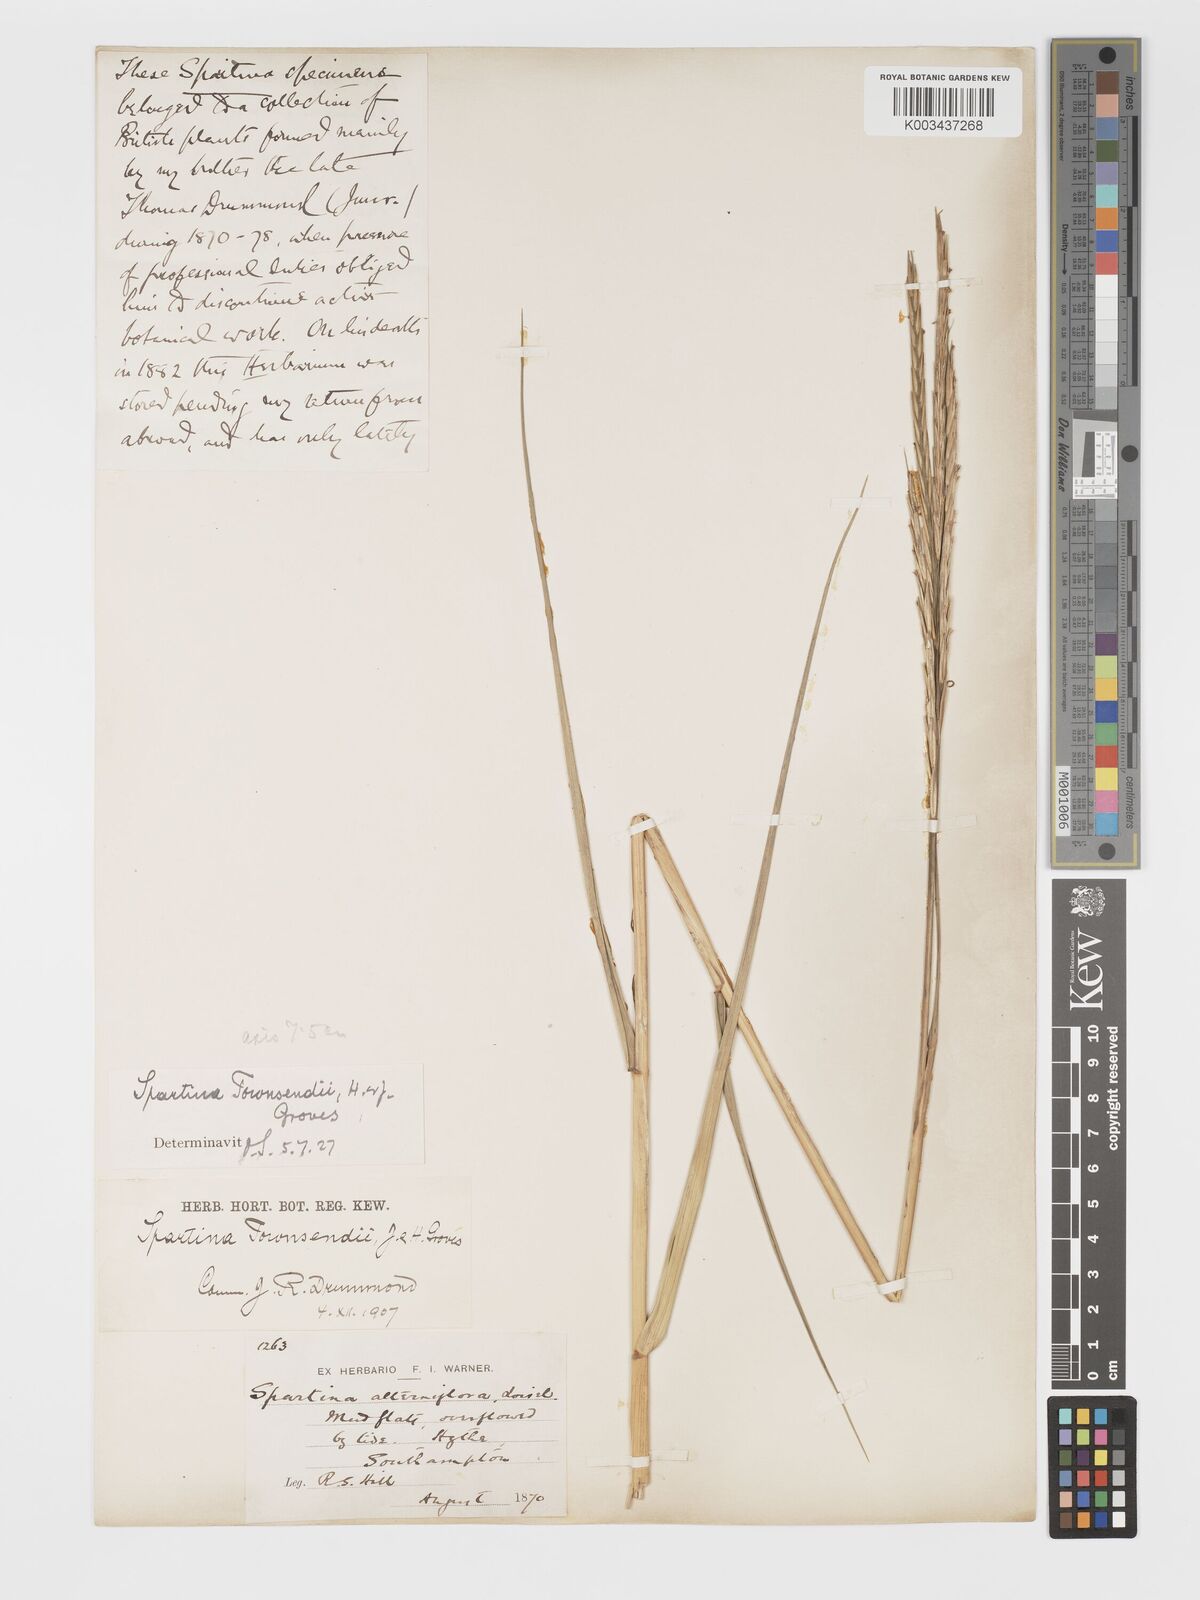 These Spartina specimens
belonged to a collection of
British plants formed mainly
by my brother the late
Thomas Drummond (Junr.)
during 1870-78, when pressure
of professional duties obliged
him to discontinue active
botanical work. On his death
in 1882 this Herbarium was
stored pending my return from
abroad, and has only lately
ROYAL BOTANIC GARDENS KEW
K003437268
axis 7·5 cm
Spartina Townsendii, H. & J.
Groves
Determinavit 5.7.27
HERB. HORT. BOT. REG. KEW.
Spartina Townsendii, J. & H. Groves
Comm. J. R. Drummond
4. XII. 1907
1263
EX HERBARIO F. I. WARNER.
Spartina alterniflora, Loisel.
Mud flats, overflowed
by tide. Hythe,
Southampton
Leg. R. S. Hill
August 1870
inches
centimeters
Don Williams
M001006
Royal Botanic Gardens
Kew
0 1 2 3 4 5 6 7 8 9 10
cm
copyright reserved